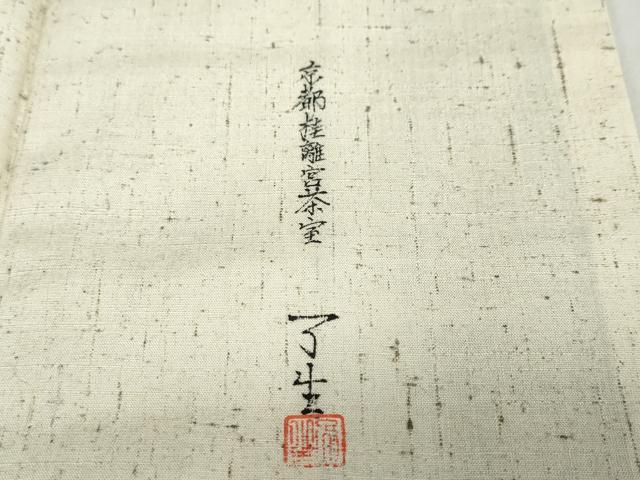 京都桂離宮茶室
了生